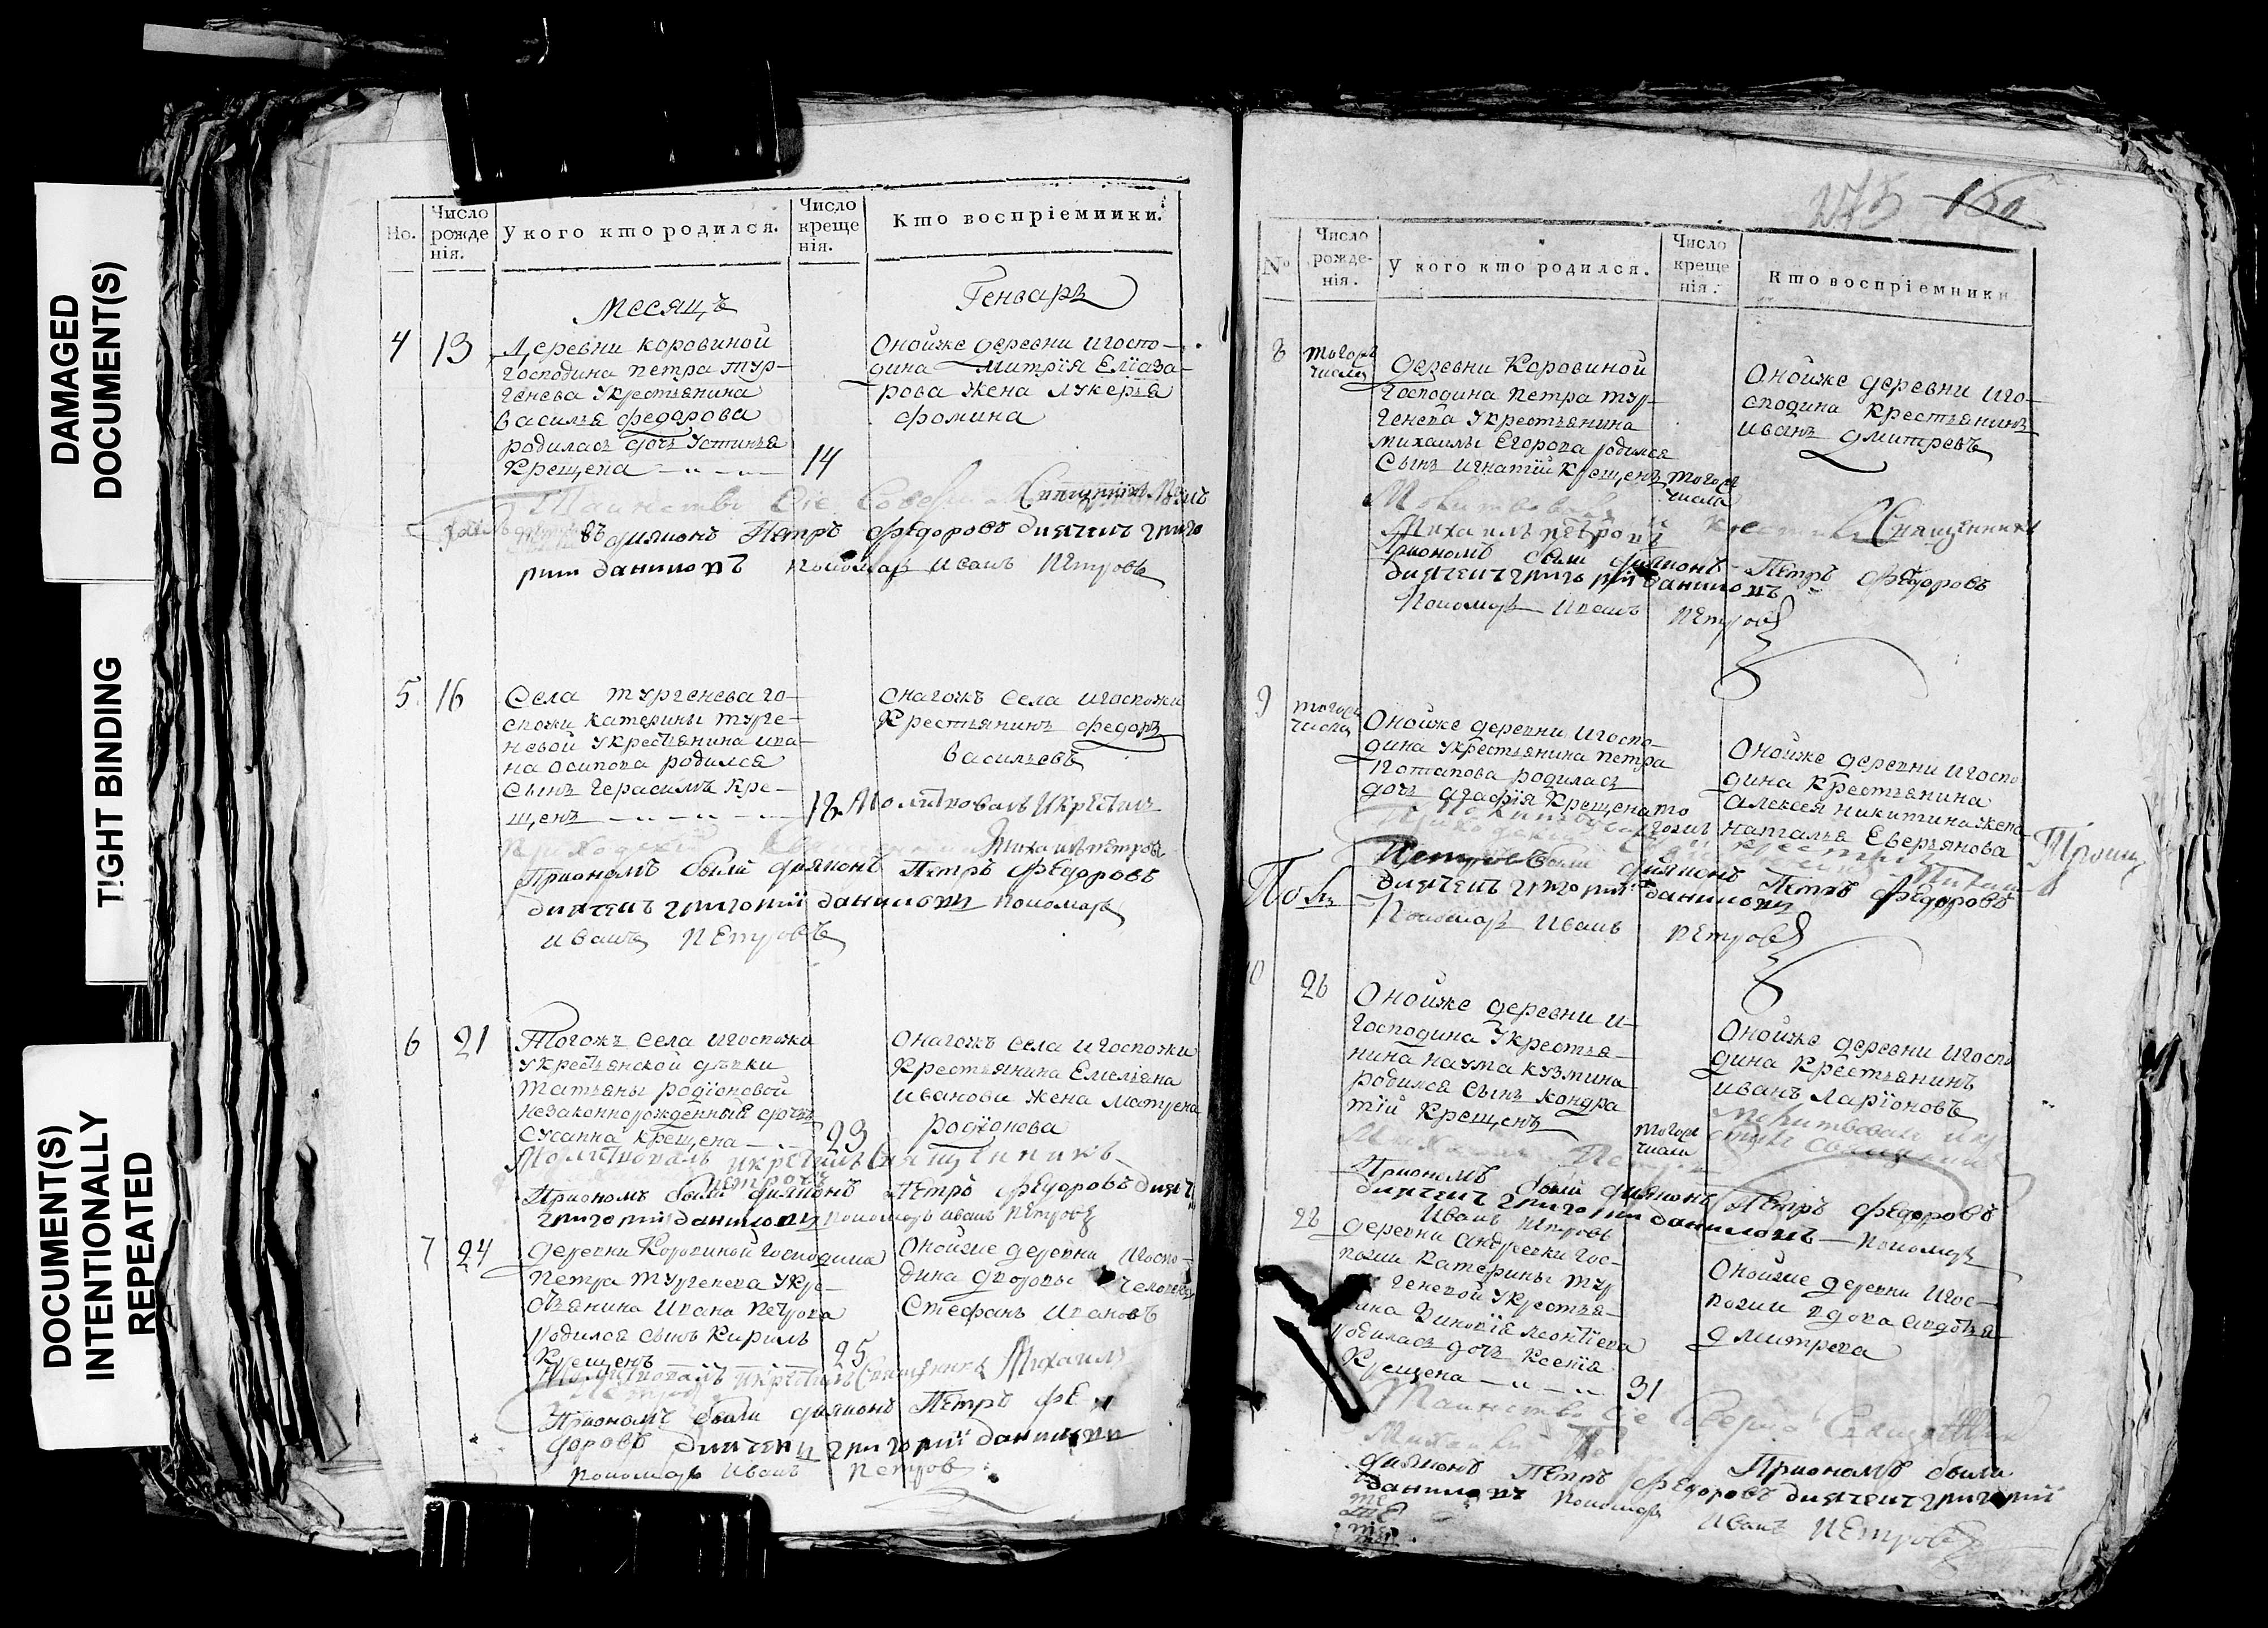 DAMAGED
DOCUMENT(S)
TIGHT BINDING
DOCUMENT(S)
INTENTIONALLY
REPEATED
Но.
Число рожденія.
У кого кто родился.
Число крещенія.
Кто воспріемники.
Месяцъ
Генварь
4
13
деревни коровиной
господина петра тур-
генева укрестьянина
василья федорова
родилась дочь устинья
крещена
14
Онойже деревни игоспо-
дина Митрїя Елїаза-
рова жена лукерья
фомина
Таинство сіе
дияконъ Петръ Федоровъ диячекъ григо
рии даниловъ пономарь иванъ Петровъ
5
16
Села тургенева го-
спожи катерины турге-
невой укрестьянина ива-
на осипова родился
сынъ герасимъ кре-
щенъ
18
Онагожъ села игоспожи
крестьянинъ федоръ
васильевъ
Молитвовалъ икрестилъ
Михаилъ петровъ
Приономъ были дияконъ Петръ Федоровъ
диячекъ григорий даниловъ пономарь
иванъ Петровъ
6
21
Тогожъ села игоспожи
укрестьянской девки
татьяны родїоновой
незаконнорожденныя дочь
сусанна крещена
23
Онагожъ села игоспожи
крестьянина Емельяна
иванова жена матрена
родїонова
Молитвовалъ икрестилъ Священникъ
петровъ
Приономъ были дияконъ Петръ Федоровъ диячк
григорий даниловъ пономарь иванъ Петровъ
7
24
деревни Коровиной господина
петра тургенева укре-
стьянина ивана петрова
родился сынъ кирилъ
крещенъ
25
Онойже деревни игоспо-
дина дворовы человекъ
Стефанъ ивановъ
Молитвовалъ икрестилъ Священникъ Михаилъ
Приономъ были дияконъ Петръ Фе
доровъ диячекъ григорий даниловъ
пономарь иванъ Петровъ
275
No
Число рожденія.
У кого кто родился.
Число крещенія.
Кто воспріемники
8
тогожъ
числа
деревни Коровиной
господина петра тур-
генева укрестьянина
михаилы Егорова родился
сынъ игнатїй крещенъ
тогожъ
числа
Онойже деревни иго-
сподина крестьянинъ
иванъ дмитревъ
Молитвовалъ и крестилъ Священникъ
Михаилъ петровъ
Приономъ были дияконъ Петръ Федоровъ
диячекъ григорий даниловъ
пономарь иванъ Петровъ
9
тогожъ
числа
Онойже деревни игоспо-
дина укрестьянина петра
потапова родилась
дочь агафїя крещена то
гожъ
Онойже деревни игоспо
дина крестьянина
алексея никитина жена
наталья Еверьянова
Троиц
Петровъ
были дияконъ Петръ Федоровъ
диячекъ григорий даниловъ
пономарь иванъ Петровъ
10
26
Онойже деревни и-
господина укрестья-
нина наума кузмина
родился сынъ кондра
тїй крещенъ
тогожъ
числа
Онойже деревни игоспо
дина крестьянинъ
иванъ ларїоновъ
Молитвовалъ
Михаилъ Петровъ
Приономъ были дияконъ Петръ Федоровъ
диячекъ григорий даниловъ пономарь
иванъ петровъ
28
деревни андреевки гос-
пожи катерины тур
геневой укрестья-
нина леонтїева
родилась дочь ксенїя
крещена
31
Онойже деревни игос-
пожи вдова авдотья
дмитрева
Таинство сіе Священникъ
Приономъ были
дияконъ Петръ Федоровъ диячекъ григорий
даниловъ пономарь иванъ Петровъ